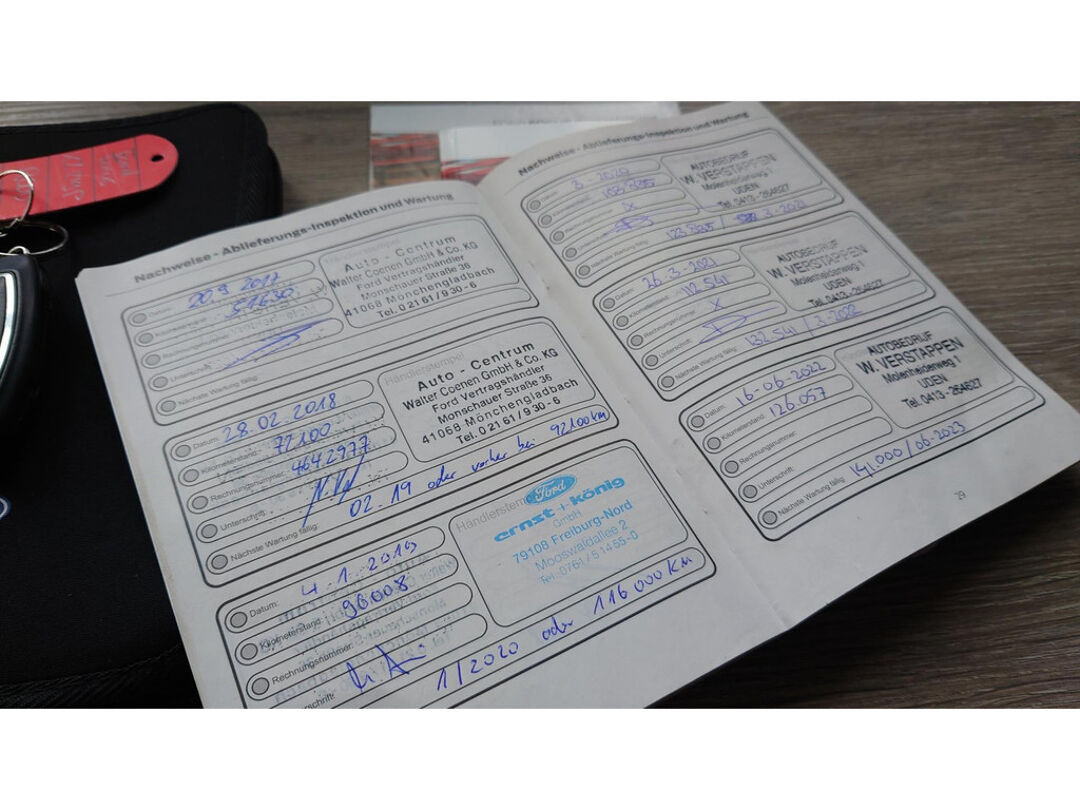 Nachweise - Ablieferungs-Inspektion und Wartung
Datum: 20.9 2017
Kilometerstand: 51630
Rechnungsnummer:
Unterschrift:
Nächste Wartung fällig:
Händlerstempel
Auto - Centrum
Walter Coenen GmbH & Co. KG
Ford Vertragshändler
Monschauer Straße 36
41068 Mönchengladbach
Tel. 02161/930-6
Datum: 28.02.2018
Kilometerstand: 72100
Rechnungsnummer: 4642977
Unterschrift:
Nächste Wartung fällig: 02.19 oder vorher bei 92100km
Händlerstempel
Auto - Centrum
Walter Coenen GmbH & Co. KG
Ford Vertragshändler
Monschauer Straße 36
41068 Mönchengladbach
Tel. 02161/930-6
Datum: 4 1. 2019
Kilometerstand: 96008
Rechnungsnummer:
rschrift:
1/2020 oder 116000 KM
Händlerstem
Ford
ernst + könig
GmbH
79108 Freiburg-Nord
Mooswaldallee 2
Tel. 0761/51455-0
Nachweise - Ablieferungs-Inspektion und Wartung
Datum: 3. 2020
Kilometerstand:
Rechnungsnummer: x
Unterschrift:
Nächste Wartung fällig: 3.2021
AUTOBEDRIJF
W. VERSTAPPEN
Molenheidenweg 1
UDEN
Tel. 0413-264627
Datum: 26.3-2021
Kilometerstand: 112.541
Rechnungsnummer: x
Unterschrift:
Nächste Wartung fällig: 132.541 / 3-2022
AUTOBEDRIJF
W. VERSTAPPEN
Molenheidenweg 1
UDEN
Tel. 0413-264627
Datum: 16-06-2022
Kilometerstand: 126.057
Rechnungsnummer:
Unterschrift:
Nächste Wartung fällig: 141.000/06-2023
AUTOBEDRIJF
W. VERSTAPPEN
Molenheidenweg 1
UDEN
Tel. 0413-264627
29